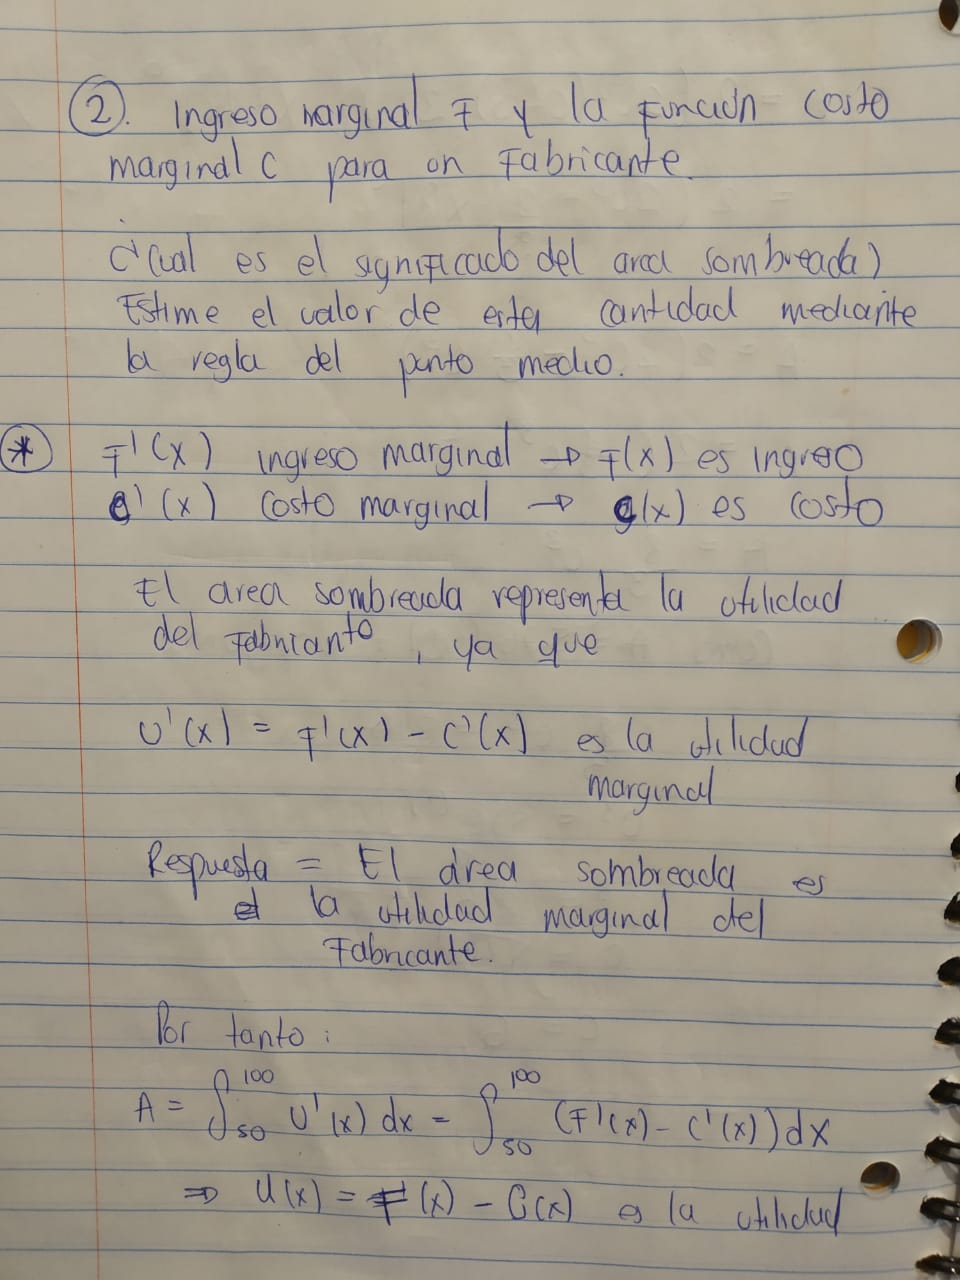 2. Ingreso marginal F y la Función Costo
marginal C para un Fabricante.
¿Cual es el significado del area sombreada)
Estime el valor de esta cantidad mediante
la regla del punto medio.
* F'(x) ingreso marginal → F(x) es Ingreso
C'(x) Costo marginal → C(x) es Costo
El area sombreada representa la utilidad
del Fabricante, ya que
U'(x) = F'(x) - C'(x) es la utilidad
marginal
Respuesta = El área sombreada es
la utilidad marginal del
Fabricante.
Por tanto:
A = ∫₅₀¹⁰⁰ U'(x) dx = ∫₅₀¹⁰⁰ (F'(x) - C'(x)) dx
⇒ U(x) = F(x) - C(x) es la utilidad